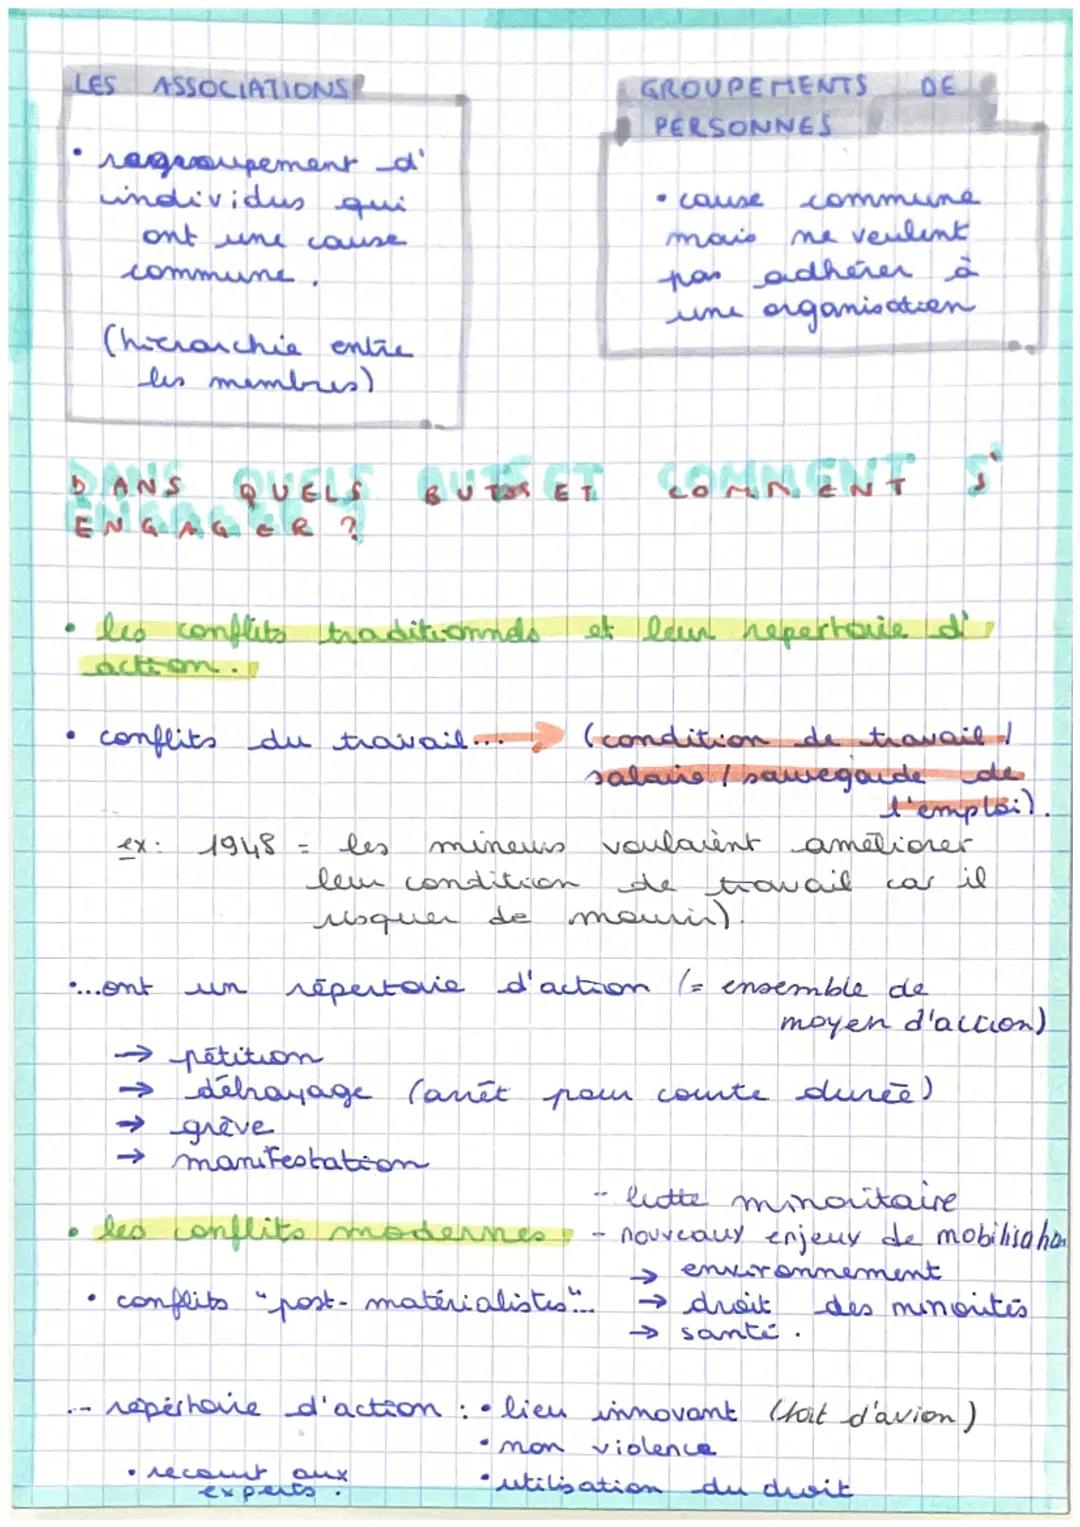 LES ASSOCIATIONS
• regroupement d'
individus qui
ont une cause
commune.
(hiérarchie entre
les membres)
GROUPEMENTS DE
PERSONNES
• cause commune
mais ne veulent
pas adhérer à
une organisation
DANS QUELS BUTS ET COMMENT S'
ENGAGER ?
• les conflits traditionnels et leur repertoire d'
action.
• conflits du travail... → (condition de travail /
salaire / sauvegarde de
l'emploi).
ex: 1948 = les mineurs voulaient améliorer
leur condition de travail car il
risquer de mourir).
•...ont un répertoire d'action (= ensemble de
moyen d'action)
→ pétition
→ débrayage (arrêt pour courte durée)
→ grève
→ manifestation
• les conflits modernes
- lutte minoritaire
- nouveaux enjeux de mobilisation
→ environnement
• conflits "post-matérialistes"...
→ droit des minorités
→ santé.
.-- répertoire d'action : • lieu innovant (toit d'avion)
• non violence
• recourt aux
experts.
• utilisation du droit